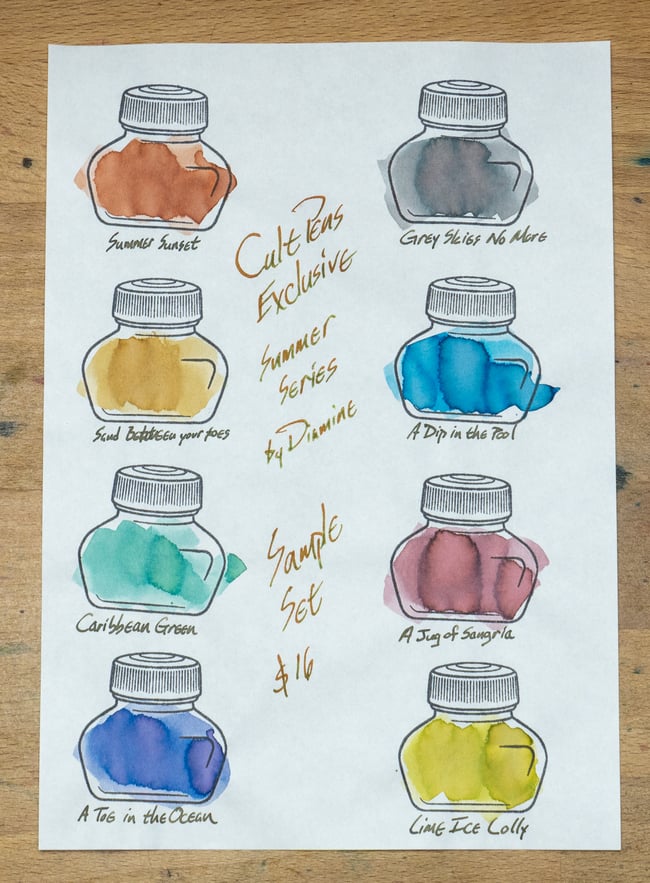 Summer Sunset
Grey Skies No More
Cult Pens
Exclusive
Summer
Series
by Diamine
Sand Between your toes
A Dip in the Pool
Caribbean Green
A Jug of Sangria
Sample
Set
$16
A Toe in the Ocean
Lime Ice Lolly